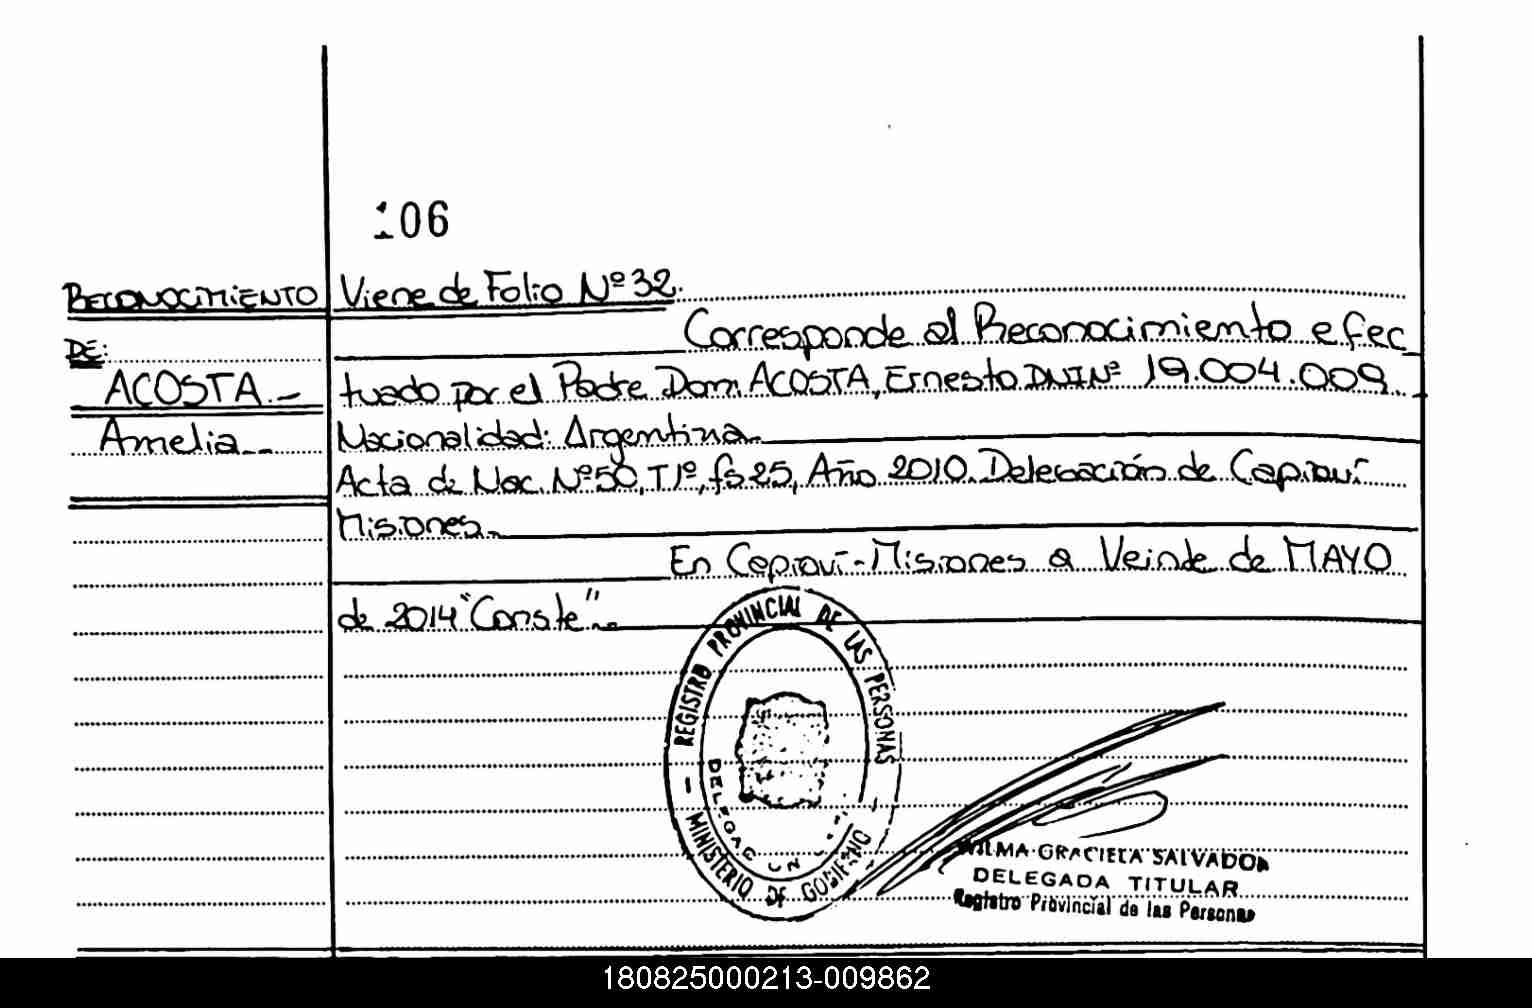 106
RECONOCIMIENTO
DE:
ACOSTA.-
Amelia.-
Viene de Folio Nº 32.
Corresponde al Reconocimiento efec
tuado por el Padre Dom. ACOSTA, Ernesto DNI Nº 19.004.009.
Nacionalidad: Argentina.
Acta de Nac. Nº 50, T 1º, fs 25, Año 2010. Delegación de Capioví
Misiones.
En Capioví - Misiones a Veinte de MAYO
de 2014 "Conste".
REGISTRO PROVINCIAL DE LAS PERSONAS
- MINISTERIO DE GOBIERNO -
WILMA GRACIELA SALVADOR
DELEGADA TITULAR
Registro Provincial de las Personas
180825000213-009862